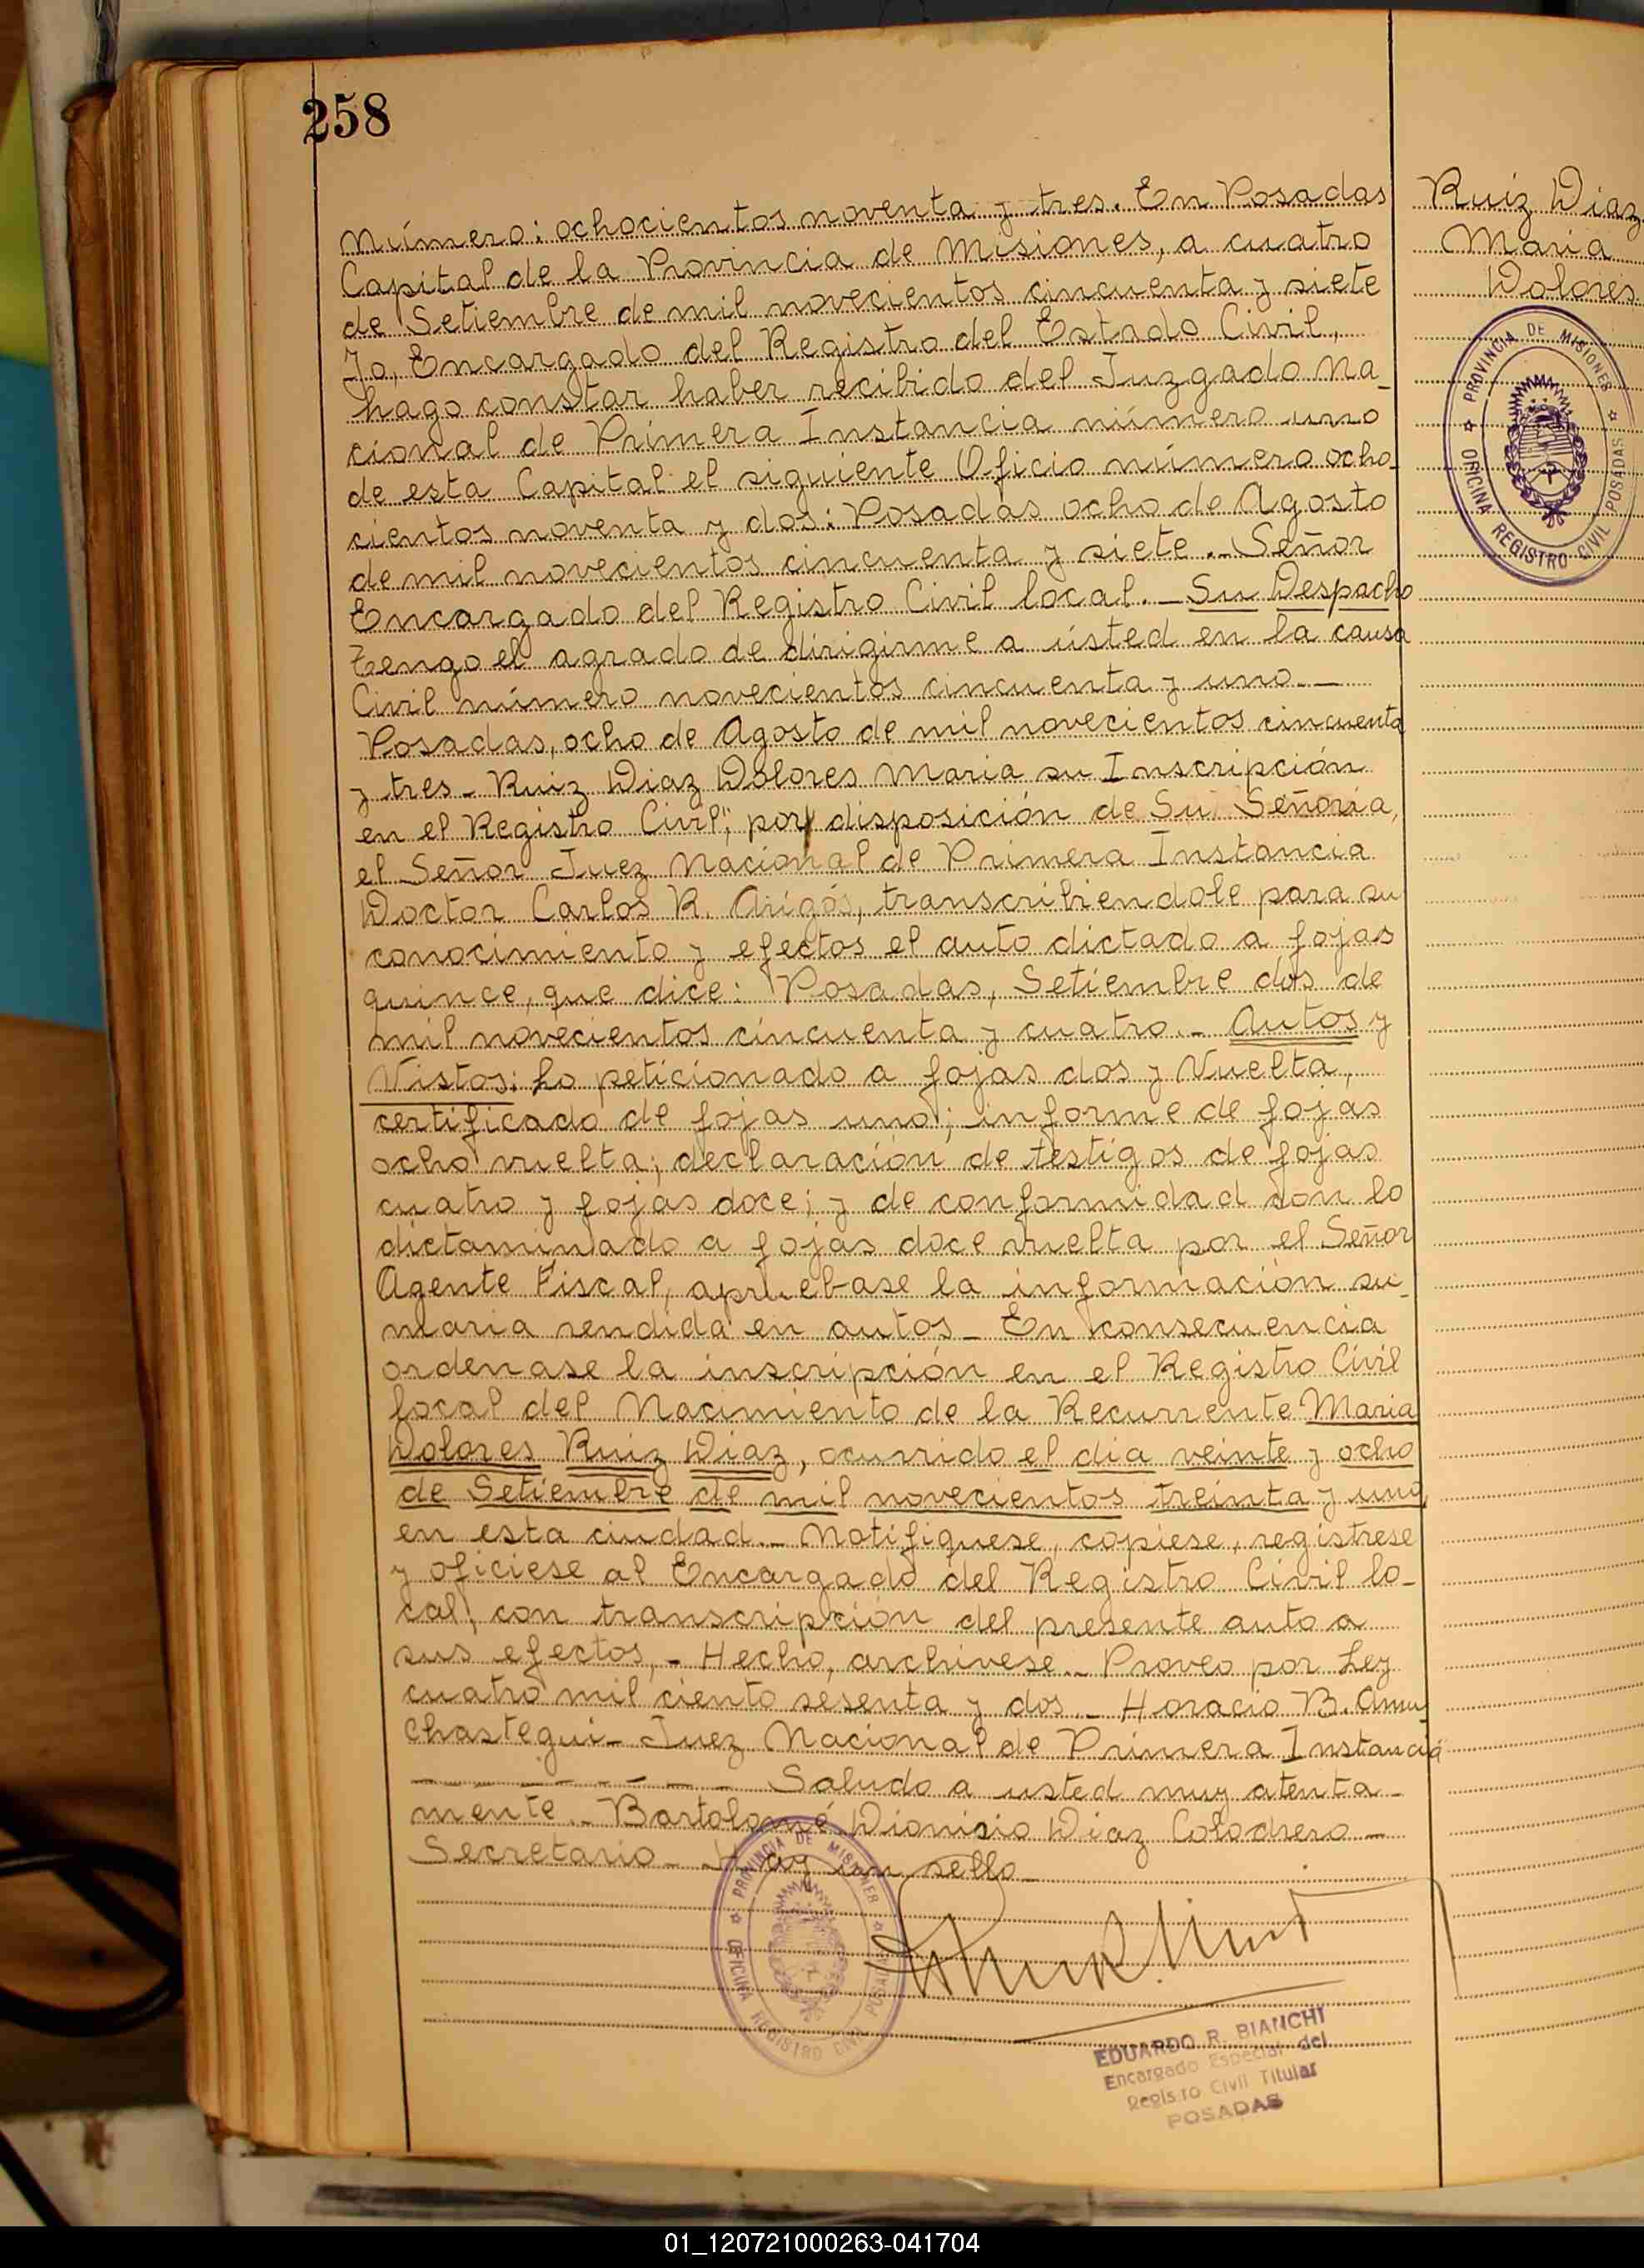 258
Número: ochocientos noventa y tres. En Posadas
Capital de la Provincia de Misiones, a cuatro
de Setiembre de mil novecientos cincuenta y siete
Yo, Encargado del Registro del Estado Civil,
hago constar haber recibido del Juzgado Na_
cional de Primera Instancia número uno
de esta Capital el siguiente Oficio número ocho_
cientos noventa y dos: Posadas ocho de Agosto
de mil novecientos cincuenta y siete._ Señor
Encargado del Registro Civil local._ Su Despacho
Tengo el agrado de dirigirme a usted en la causa
Civil número novecientos cincuenta y uno._
Posadas, ocho de Agosto de mil novecientos cincuenta
y tres_ Ruiz Diaz Dolores Maria su Inscripción
en el Registro Civil", por disposición de Su Señoria,
el Señor Juez Nacional de Primera Instancia
Doctor Carlos R. Arigós, transcribiendole para su
conocimiento y efectos el auto dictado a fojas
quince, que dice: Posadas, Setiembre dos de
mil novecientos cincuenta y cuatro._ Autos y
Vistos: Lo peticionado a fojas dos y Vuelta,
certificado de fojas uno; informe de fojas
ocho vuelta; declaración de testigos de fojas
cuatro y fojas doce; y de conformidad con lo
dictaminado a fojas doce vuelta por el Señor
Agente Fiscal, apruebase la información su_
maria rendida en autos_ En consecuencia
ordenase la inscripción en el Registro Civil
local del Nacimiento de la Recurrente Maria
Dolores Ruiz Diaz, ocurrido el dia veinte y ocho
de Setiembre de mil novecientos treinta y uno,
en esta ciudad._ Notifiquese, copiese, registrese
y oficiese al Encargado del Registro Civil lo_
cal, con transcripción del presente auto a
sus efectos,- Hecho, archivese._ Proveo por Ley
cuatro mil ciento sesenta y dos._ Horacio B. Amu_
chastegui_ Juez Nacional de Primera Instancia
_ _ _ _ _ _ _ Saludo a usted muy atenta_
mente._ Bartolomé Dionisio Diaz Colodrero_
Secretario_ Hay un sello_
PROVINCIA DE MISIONES
OFICINA REGISTRO CIVIL POSADAS
EDUARDO R. BIANCHI
Encargado Especial del
Registro Civil Titular
POSADAS
Ruiz Diaz
Maria
Dolores
PROVINCIA DE MISIONES
OFICINA REGISTRO CIVIL POSADAS
01_120721000263-041704